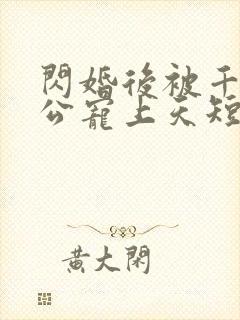 閃婚後被千
公寵上天短
黃大閑